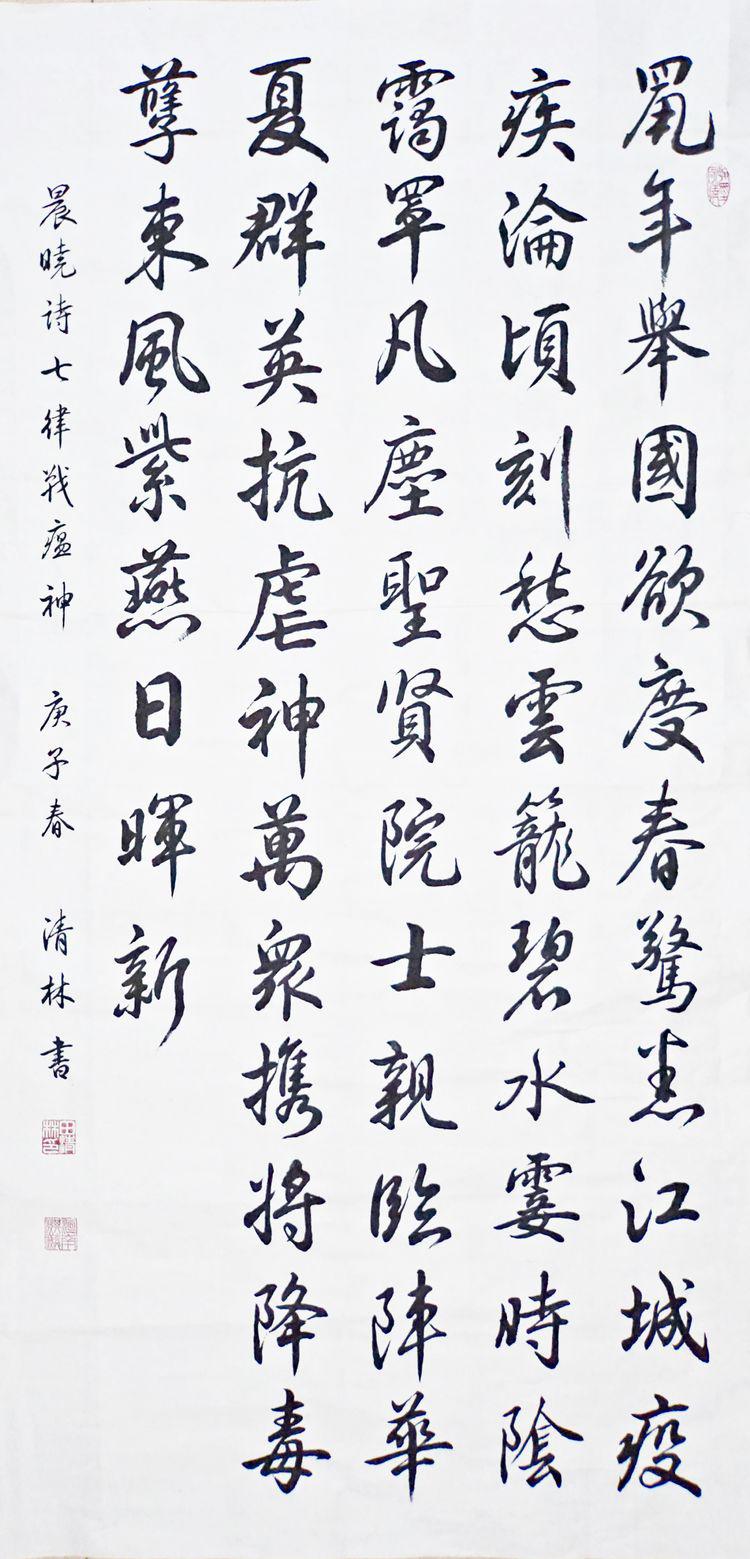 鼠年舉國欲度春驚悉江城疫
疾淪頃刻愁雲籠碧水霎時陰
靄罩凡塵聖賢院士親臨陣華
夏群英抗虐神萬眾携將降毒
孽東風紫燕日暉新
晨曉詩七律戰瘟神 庚子春 清林書